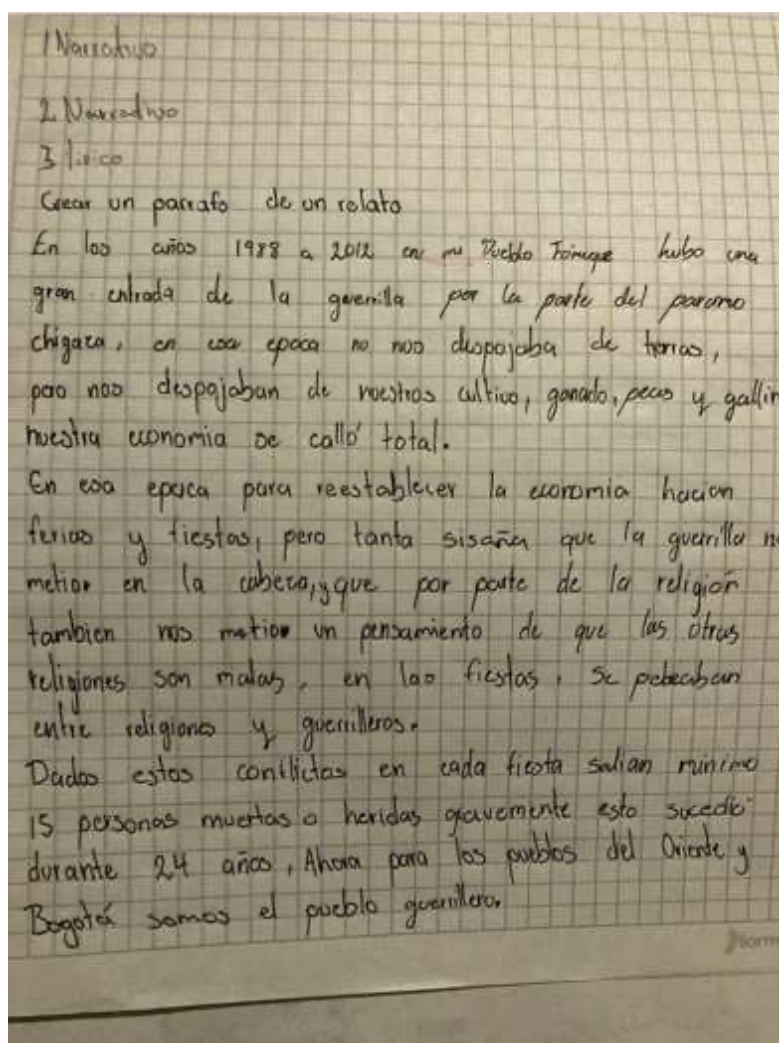 1 Narrativo
2 Narrativo
3 lirico
Crear un parrafo de un relato
En los años 1988 a 2012 en mi Pueblo Fomeque hubo una
gran entrada de la guerrilla por la parte del paramo
chigaza, en esa epoca no nos despojaba de tierras,
pero nos despojaban de nuestros cultivo, ganado, peces y gallin
nuestra economia se calló total.
En esa epoca para reestablecer la economia hacian
ferias y fiestas, pero tanta sisaña que la guerrilla no
metion en la cabeza, y que por parte de la religion
tambien nos metion un pensamiento de que las otras
religiones son malas, en las fiestas, se peleaban
entre religiones y guerrilleros.
Dados estos conflictos en cada fiesta salian minimo
15 personas muertas o heridas gravemente esto sucedio
durante 24 años, Ahora para los pueblos del Oriente y
Bogotá somos el pueblo guerrillero.
Norm